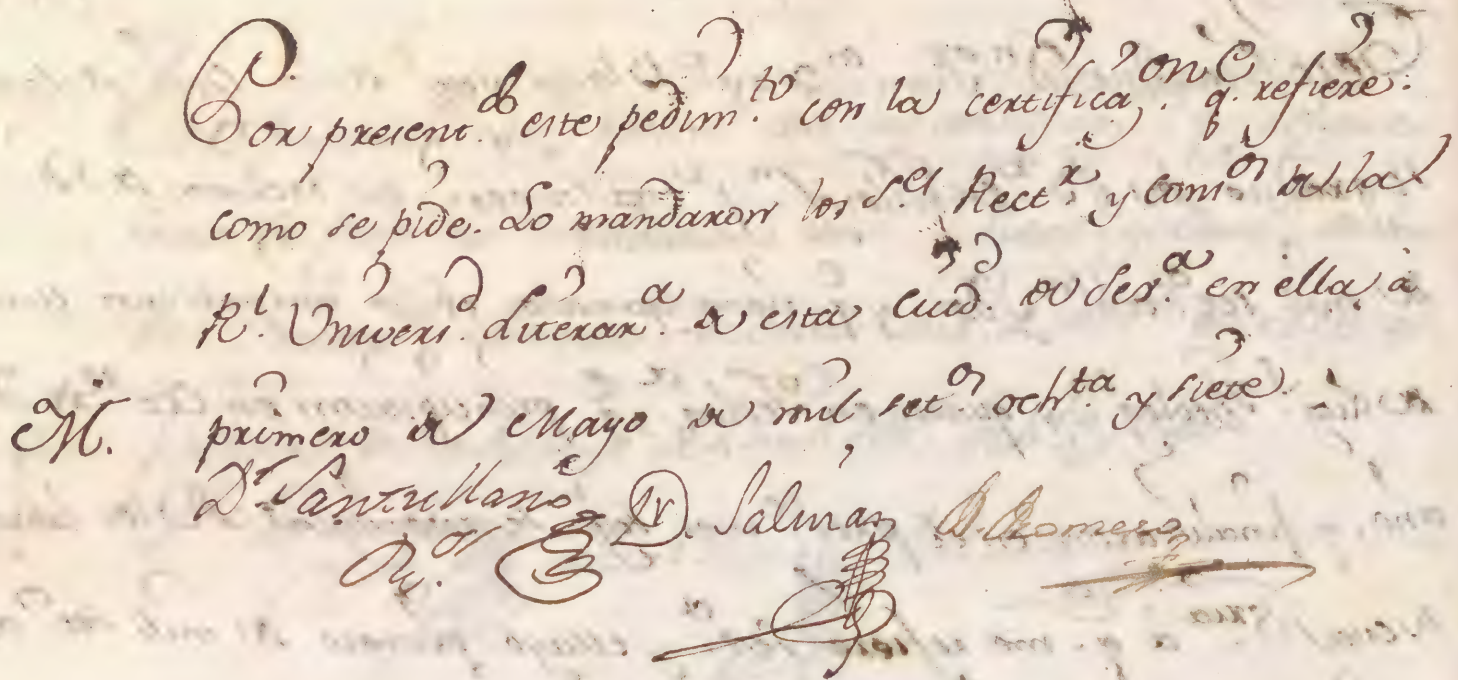 Por present.do este pedim.to con la certificaz.on q.e refiere:
como se pide. Lo mandaron los S.es Rect.r y com.os de la
R.l Univers.d Literar.a de esta Ciud.d de Sev.a en ella à
M. primero de Mayo de mil set.os och.ta y siete.
D.r Santullano D.r Salinas D. Romero
R.or